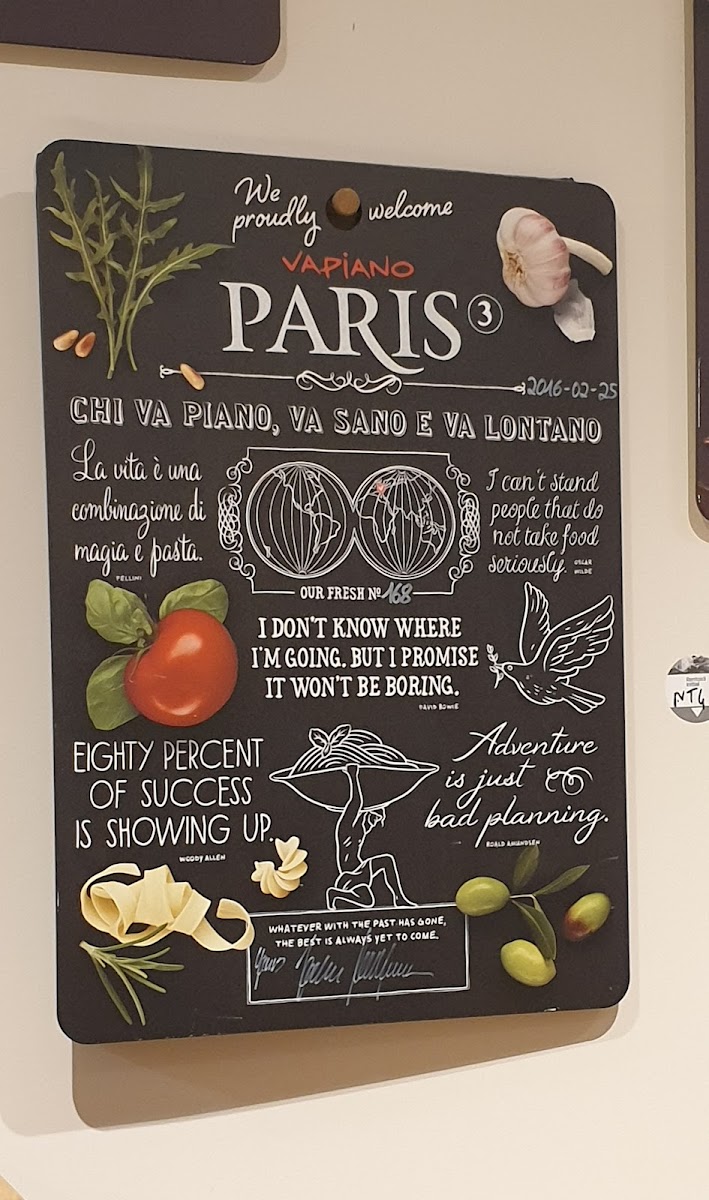 We
proudly welcome
VAPIANO
PARIS 3
2016-02-25
CHI VA PIANO, VA SANO E VA LONTANO
La vita è una
combinazione di
magia e pasta.
FELLINI
I can't stand
people that do
not take food
seriously. OSCAR
WILDE
OUR FRESH Nº 168
I DON'T KNOW WHERE
I'M GOING. BUT I PROMISE
IT WON'T BE BORING.
DAVID BOWIE
EIGHTY PERCENT
OF SUCCESS
IS SHOWING UP.
WOODY ALLEN
Adventure
is just
bad planning.
ROALD AMUNDSEN
WHATEVER WITH THE PAST HAS GONE,
THE BEST IS ALWAYS YET TO COME.
Yours